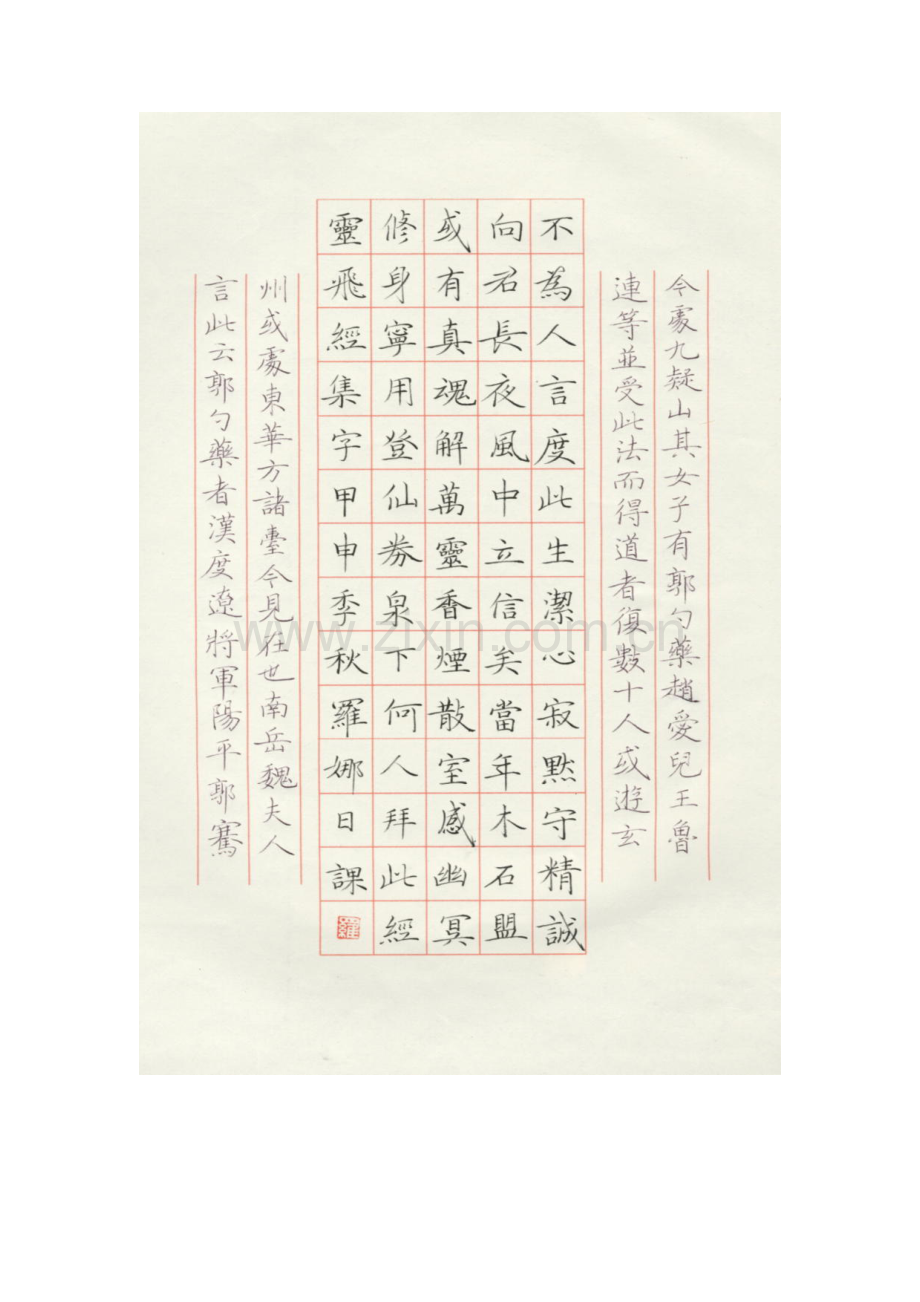 今處九疑山其女子有郭勺藥趙愛兒王魯
連等並受此法而得道者復數十人或遊玄
不為人言度此生潔心寂默守精誠
向君長夜風中立信矣當年木石盟
或有真魂解萬靈香煙散室感幽冥
修身寧用登仙券泉下何人拜此經
靈飛經集字甲申季秋羅娜日課
羅
州或處東華方諸臺今見在也南岳魏夫人
言此云郭勺藥者漢度遼將軍陽平郭騫
www.zixin.com.cn